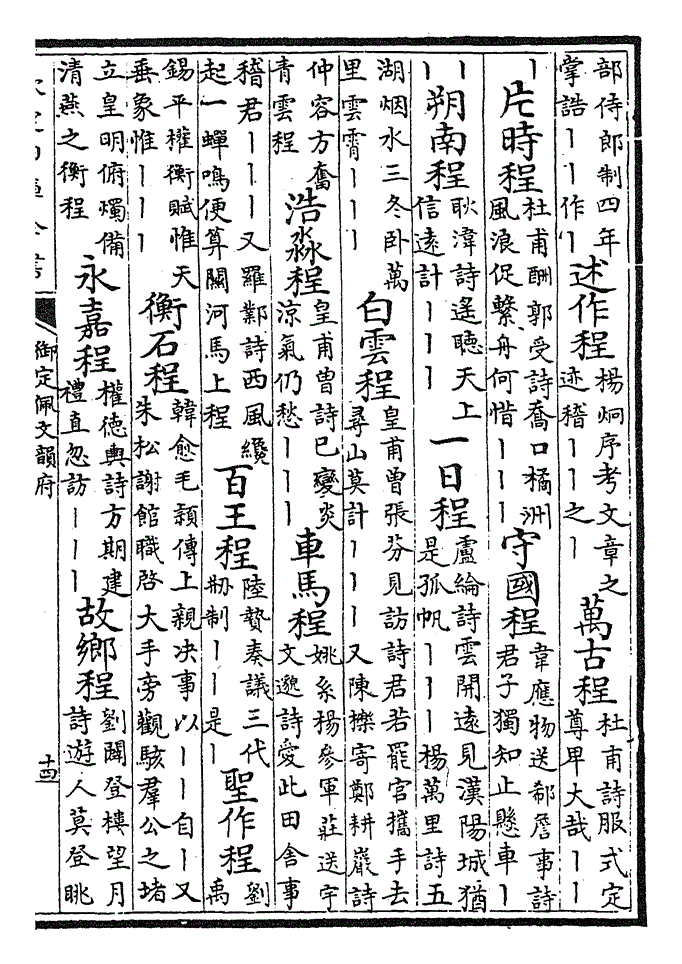 部侍郎制四年
掌誥丨丨作丨
述作程
楊炯序考文章之
迹稽丨丨之丨
萬古程
杜甫詩服式定
尊卑大哉丨丨
丨
片時程
杜甫酬郭受詩喬口橘洲
風浪促繫舟何惜丨丨丨
守國程
韋應物送郗詹事詩
君子獨知止懸車丨
丨丨
朔南程
耿湋詩遙聽天上
信遠計丨丨丨
一日程
盧綸詩雲開遠見漢陽城猶
是孤帆丨丨丨楊萬里詩五
湖烟水三冬卧萬
里雲霄丨丨丨
白雲程
皇甫曾張芬見訪詩君若罷官攜手去
尋山莫計丨丨丨又陳櫟寄鄭耕巖詩
仲容方奮
青雲程
浩淼程
皇甫曾詩已變炎
涼氣仍愁丨丨丨
車馬程
姚系楊參軍莊送宇
文邈詩愛此田舍事
稽君丨丨丨又羅鄴詩西風纔
起一蟬鳴便算關河馬上程
百王程
陸贄奏議三代
剏制丨丨是丨
聖作程
劉
禹
錫平權衡賦惟天
垂象惟丨丨丨
衡石程
韓愈毛穎傳上親决事以丨丨自丨又
朱松謝館職啓大手旁觀駭羣公之堵
立皇明俯燭備
清燕之衡程
永嘉程
權德輿詩方期建
禮直忽訪丨丨丨
故鄉程
劉闢登樓望月
詩遊人莫登眺
御定佩文韻府
十四